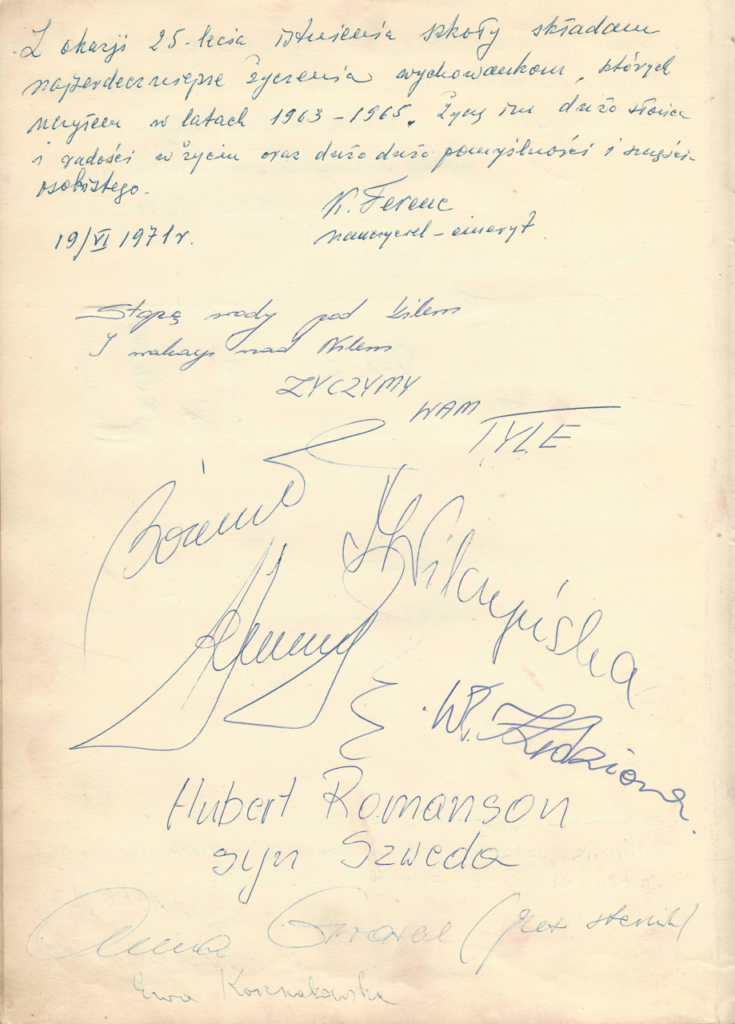 Z okazji 25-lecia istnienia szkoły składam
najserdeczniejsze życzenia wychowankom, których
uczyłem w latach 1963-1965. Życzę im dużo słońca
i radości w życiu oraz dużo dużo pomyślności i szczęścia
osobistego.
K. Ferenc
19/VI 1971r.
nauczyciel-emeryt
Stopę wody pod kilem
I wakacje nad Nilem
ŻYCZYMY
WAM
TYLE
Wilczyńska
Wł.
Hubert Romanson
syn Szweda
Anna
Ewa